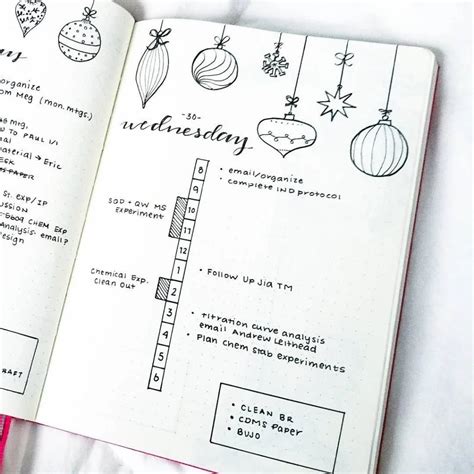 day
organize
om Meg (mon. mtgs.)
mtg.
TO PAUL VI
material → Eric
ESK
PAPER
St. exp/IP
USSION
CHEM EXP
Analysis - email?
design
RAFT
-30-
wednesday
8
• email/organize
• complete IND protocol
9
SQD + QW MS
Experiment
10
11
12
1
• Follow Up Jia TM
Chemical Exp.
Clean Out
2
3
• Titration curve analysis
email Andrew Leithead
4
• Plan Chem Stab experiments
5
6
• CLEAN BR
• CDMS Paper
• BUJO